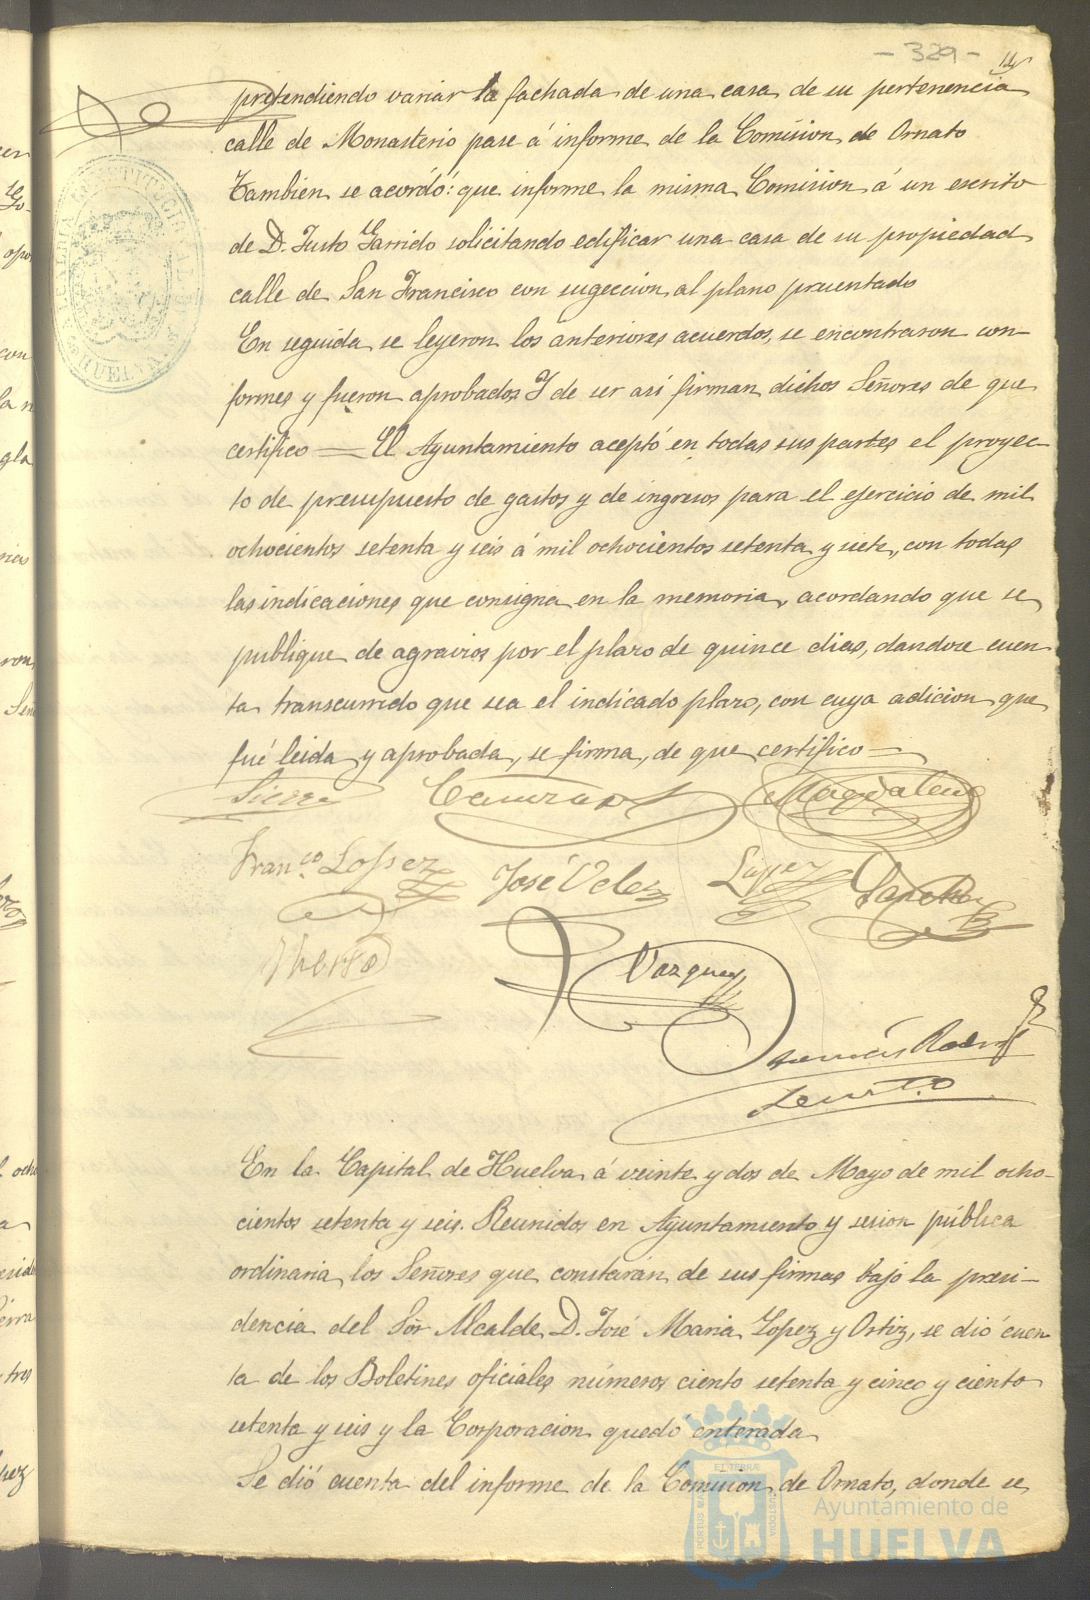 - 329 -
pretendiendo variar la fachada de una casa de su pertenencia
calle de Monasterio pase á informe de la Comision de Ornato
Tambien se acordó: que informe la misma Comision á un escrito
de D. Justo Garrido solicitando edificar una casa de su propiedad
calle de San Francisco con sugeccion al plano presentado
En seguida se leyeron los anteriores acuerdos, se encontraron con-
formes y fueron aprobados Y de ser asi firman dichos Señores de que
certifico = El Ayuntamiento aceptó en todas sus partes el proyec-
to de presupuesto de gastos y de ingresos para el ejercicio de mil
ochocientos setenta y seis á mil ochocientos setenta y siete, con todas
las indicaciones que consigna en la memoria, acordando que se
publique de agravios por el plazo de quince dias, dandose cuen-
ta transcurrido que sea el indicado plazo, con cuya adicion que
fué leida y aprobada, se firma, de que certifico =
Sierra Magdalena
Franco. Lopez José Velez Lopez
Vazquez
En la Capital de Huelva á veinte y dos de Mayo de mil ocho-
cientos setenta y seis. Reunidos en Ayuntamiento y sesion pública
ordinaria los Señores que constarán de sus firmas bajo la presi-
dencia del Sõr Alcalde D. José Maria Lopez y Ortiz, se dió cuen
ta de los Boletines oficiales números ciento setenta y cinco y ciento
setenta y seis y la Corporacion quedó enterada
Se dió cuenta del informe de la Comision de Ornato, donde se
Ayuntamiento de
HUELVA